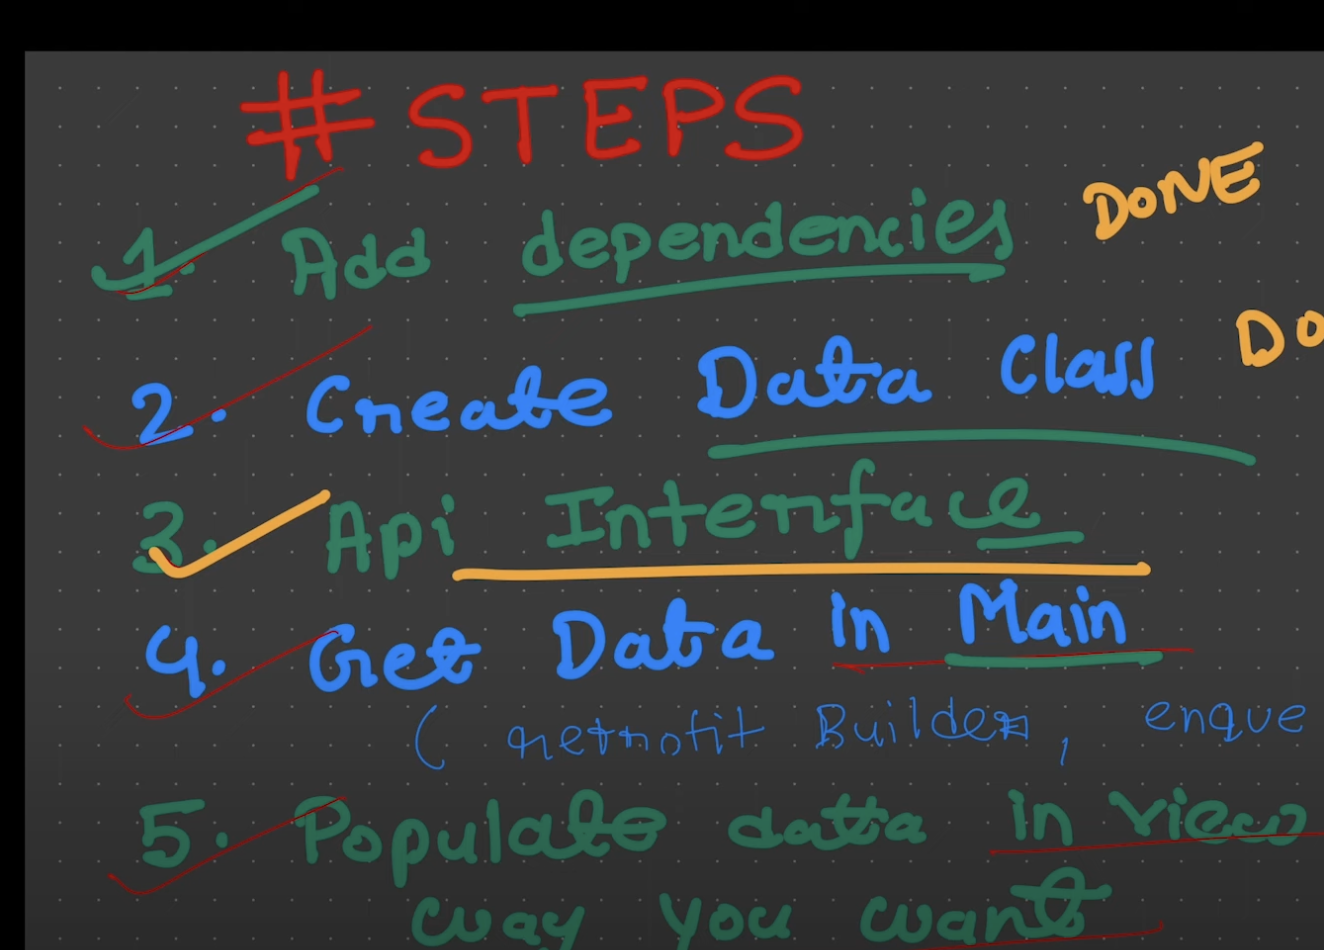 # STEPS
1. Add dependencies DONE
2. Create Data Class DO
3. Api Interface
4. Get Data in Main
( retrofit Builder, enque
5. Populate data in view
way you want